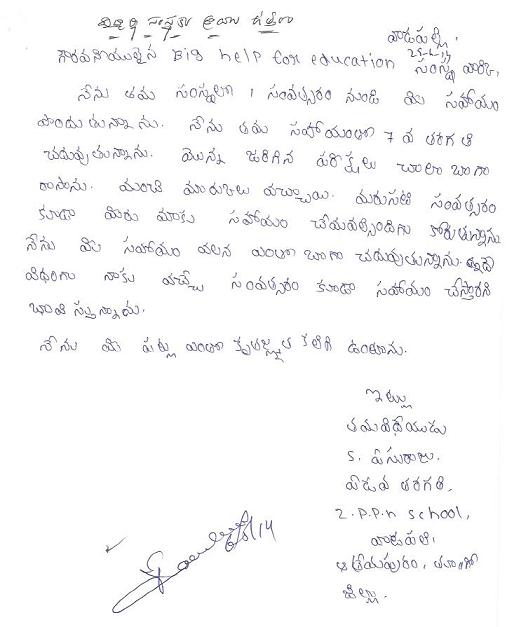 విద్యార్థి సంస్థకు వ్రాయు ఉత్తరం
వాడపల్లి,
25-6-14
గౌరవనీయులైన Big help for education సంస్థ వారికి,
నేను తమ సంస్థలో 1 సంవత్సరం నుండి మీ సహాయం
పొందుతున్నాను. నేను తమ సహాయంతో 7 వ తరగతి
చదువుతున్నాను. మొన్న జరిగిన పరీక్షలు చాలా బాగా
రాసాను. మంచి మార్కులు వచ్చాయి. మరుసటి సంవత్సరం
కూడా మీరు మాకు సహాయం చేయవల్సిందిగా కోరుతున్నాను
నేను మీ సహాయం వలన ఎంతో బాగా చదువుతున్నాను. ఇదే
విధంగా నాకు వచ్చే సంవత్సరం కూడా సహాయం చేస్తారని
భావిస్తున్నాను.
నేను మీ పట్ల ఎంతో కృతజ్ఞత కలిగి ఉంటాను.
ఇట్లు
తమవిధేయుడు
S. ఏసురాజు.
ఏడవ తరగతి,
Z.P.P.H school,
వాడపల్లి,
ఆత్రేయపురం, తూ.గో
జిల్లు.